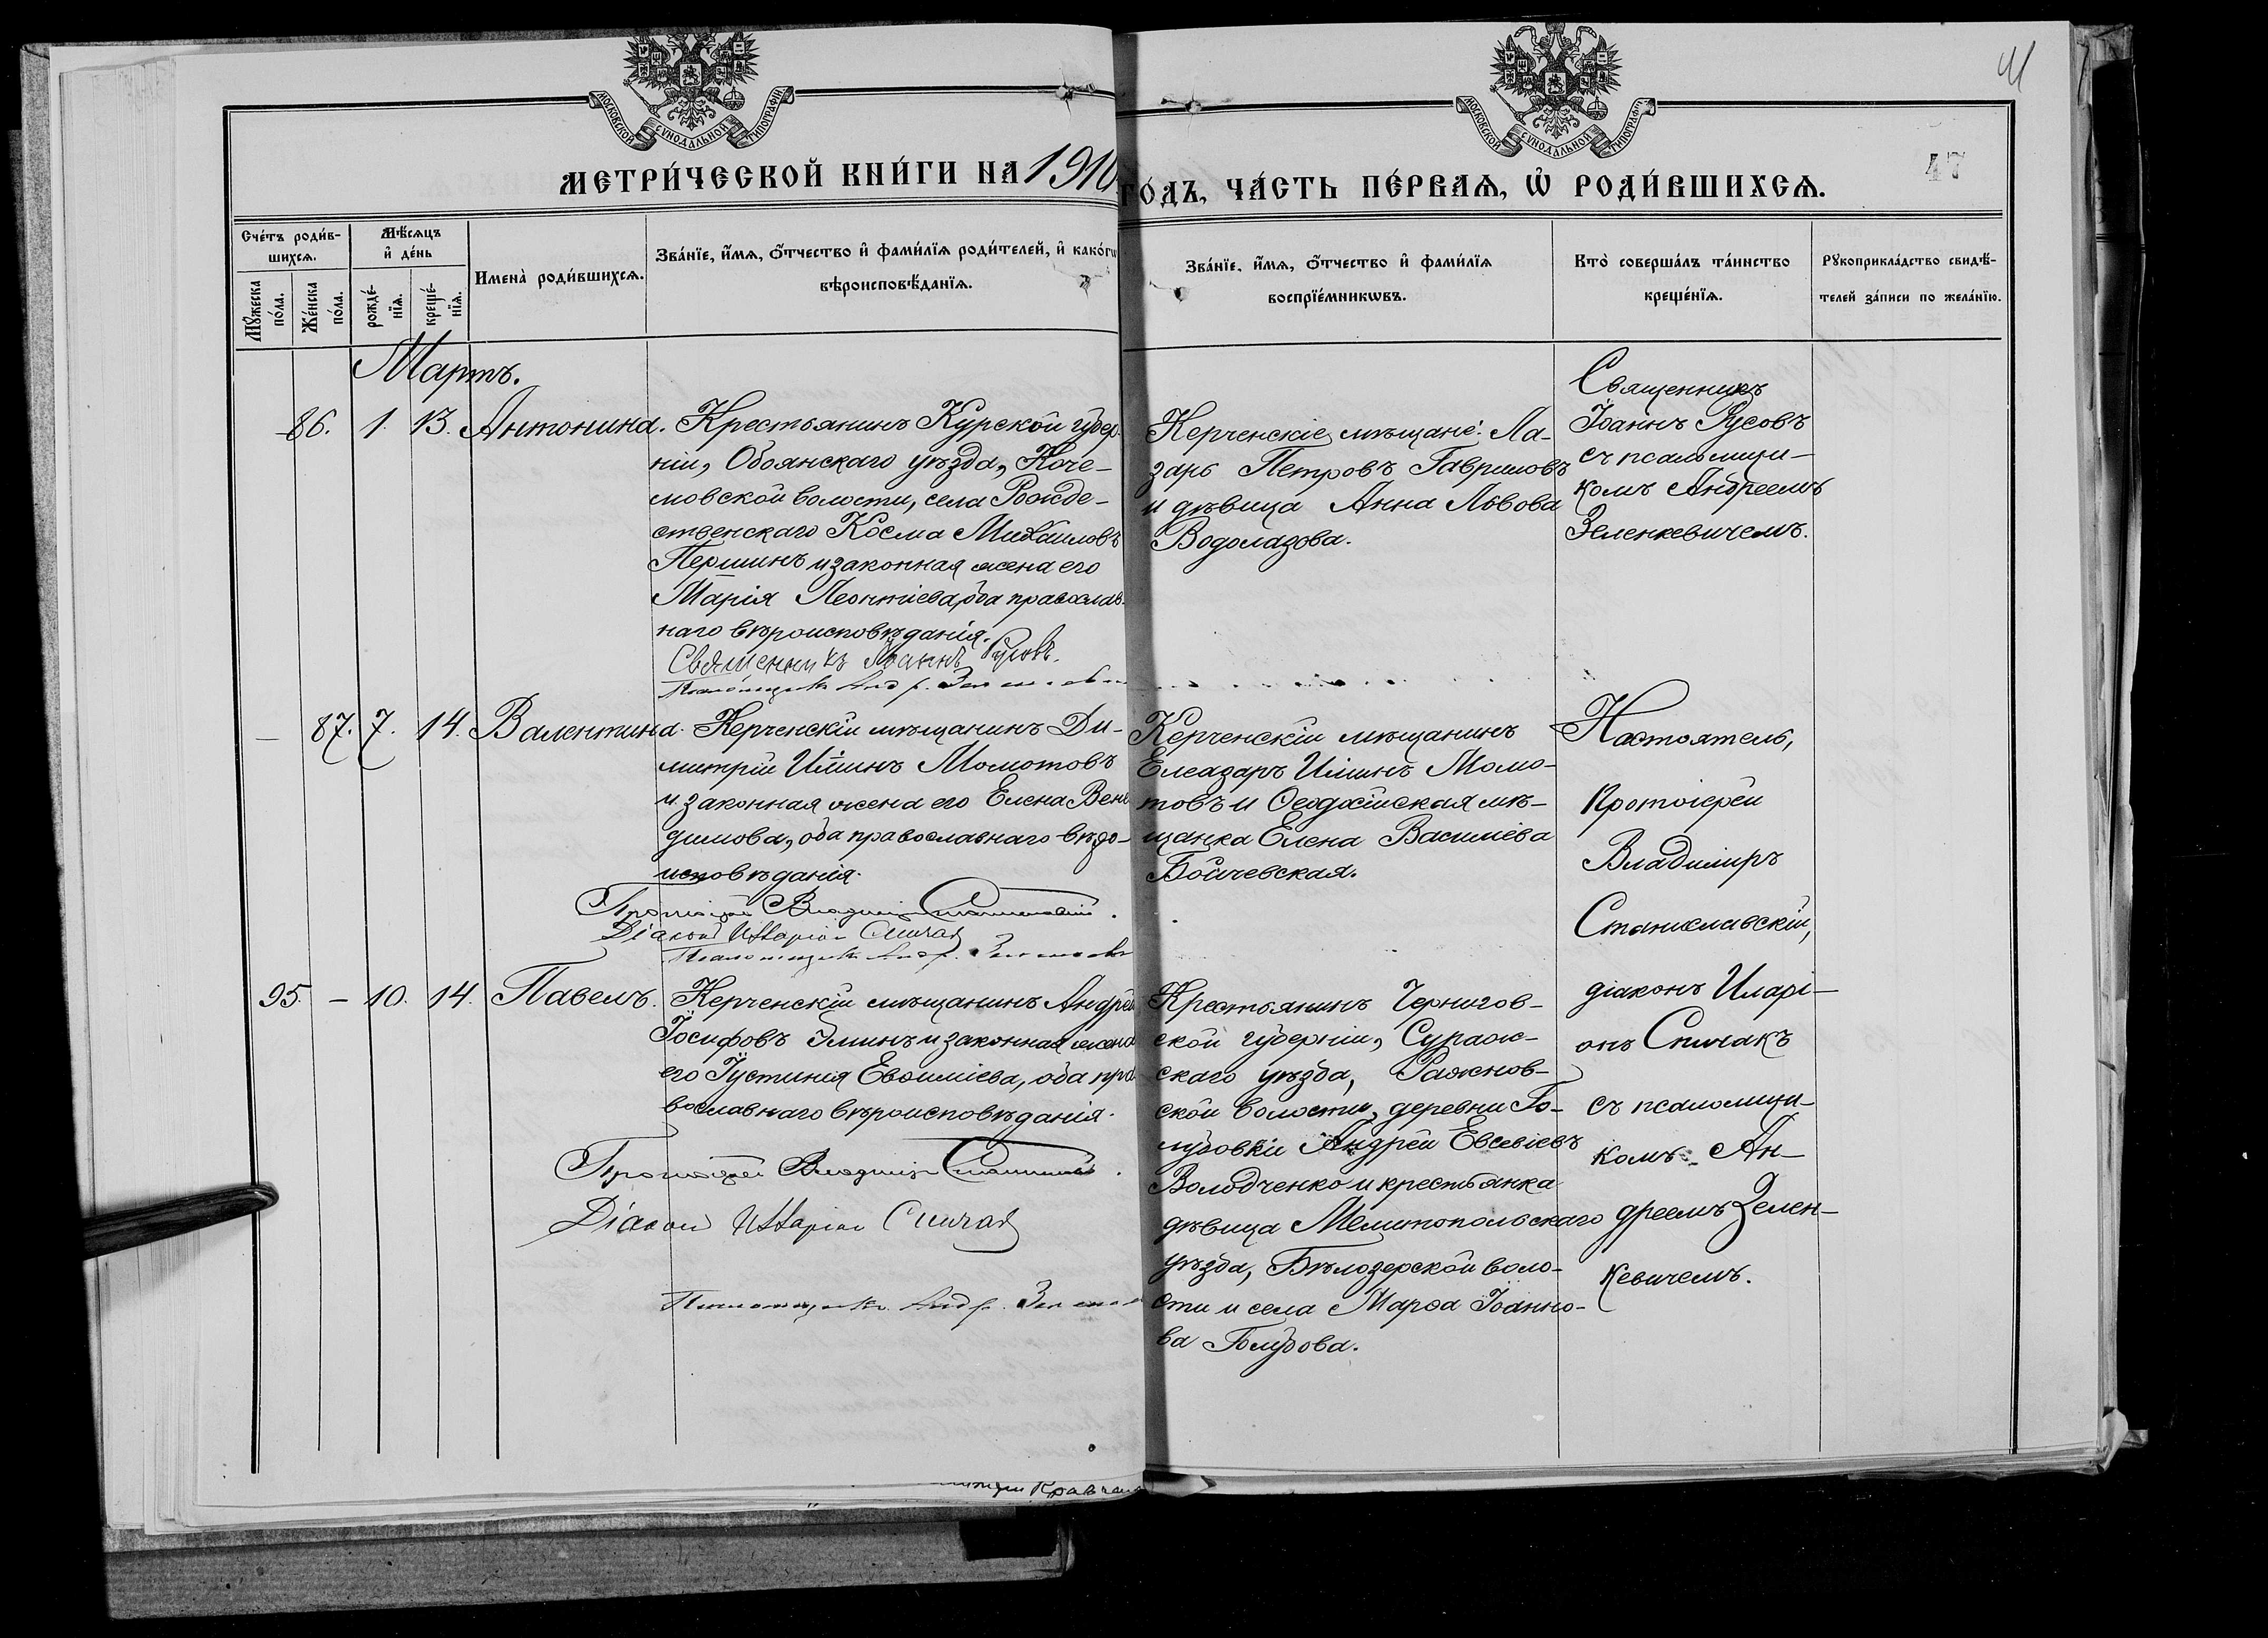 41
МОСКОВСКОЙ СѴНОДАЛЬНОЙ ТИПОГРАФІИ
МОСКОВСКОЙ СѴНОДАЛЬНОЙ ТИПОГРАФІИ
47
МЕТРИ́ЧЕСКОЙ КНИ́ГИ НА 1910
ГО́ДЪ, ЧА́СТЬ ПЕ́РВАѦ, Ѡ҆ РОДИ́ВШИХСѦ.
Сче́тъ роди́в-
шихсѧ.
Мꙋ́жеска
по́ла.
Же́нска
по́ла.
Мѣ́сѧцъ
и҆ де́нь
рожде́-
нїѧ.
креще́-
нїѧ.
Имена̀ роди́вшихсѧ.
Зва́нїе, и҆́мѧ, ѻ҆́тчество и҆ фами́лїѧ роди́телей, и҆ како́гѡ
вѣроисповѣ́данїѧ.
Зва́нїе, и҆́мѧ, ѻ҆́тчество и҆ фами́лїѧ
воспрїе́мникѡвъ.
Кто̀ соверша́лъ та́инство
креще́нїѧ.
Рꙋкоприкла́дство свидѣ́-
телей за́писи по жела́нїю.
Мартъ.
86. 1. 13. Антонина.
Крестьянинъ Курской губер
ніи, Обоянскаго уѣзда, Коче-
мовской волости, села Рожде-
ственскаго Косма Михаиловъ
Першинъ и законная жена его
Марія Леонтіева, оба православ-
наго вѣроисповѣданія.
Священникъ Іоаннъ Русовъ.
Псаломщикъ Андр.
Керченскіе мѣщане: Ла-
зарь Петровъ Гавриловъ
и дѣвица Анна Львова
Водолазова.
Священникъ
Іоаннъ Русовъ
съ псаломщи-
комъ Андреемъ
Зеленкевичемъ.
— 87. 7. 14. Валентина.
Керченскій мѣщанинъ Ди-
митрій Ильинъ Молотовъ
и законная жена его Елена Вені
димова, оба православнаго вѣро-
исповѣданія.
Протоіерей Владиміръ Станиславскій.
Діаконъ Иларіонъ Спичакъ
Псаломщикъ Андр.
Керченскій мѣщанинъ
Елеазаръ Ильинъ Моло-
товъ и Ѳеодосійская мѣ-
щанка Елена Васильева
Бойчевская.
Настоятель,
Протоіерей
Владиміръ
Станиславскій,
діаконъ Иларі-
онъ Спичакъ
съ псаломщи-
комъ Ан-
дреемъ Зелен-
кевичемъ.
95. — 10. 14. Павелъ.
Керченскій мѣщанинъ Андрей
Іосифовъ Эминъ и законная жена
его Іустинія Евѳиміева, оба пра
вославнаго вѣроисповѣданія.
Протоіерей Владиміръ
Діаконъ Иларіонъ Спичакъ
Псаломщикъ Андр.
Крестьянинъ Чернигов-
ской губерніи, Сураж-
скаго уѣзда, Ражнов-
ской волости, деревни Го-
лубовки Андрей Евсевіевъ
Володченко и крестьянка
дѣвица Мелитопольскаго
уѣзда, Бѣлозерской воло-
сти и села Марѳа Іоанно-
ва Голубова.